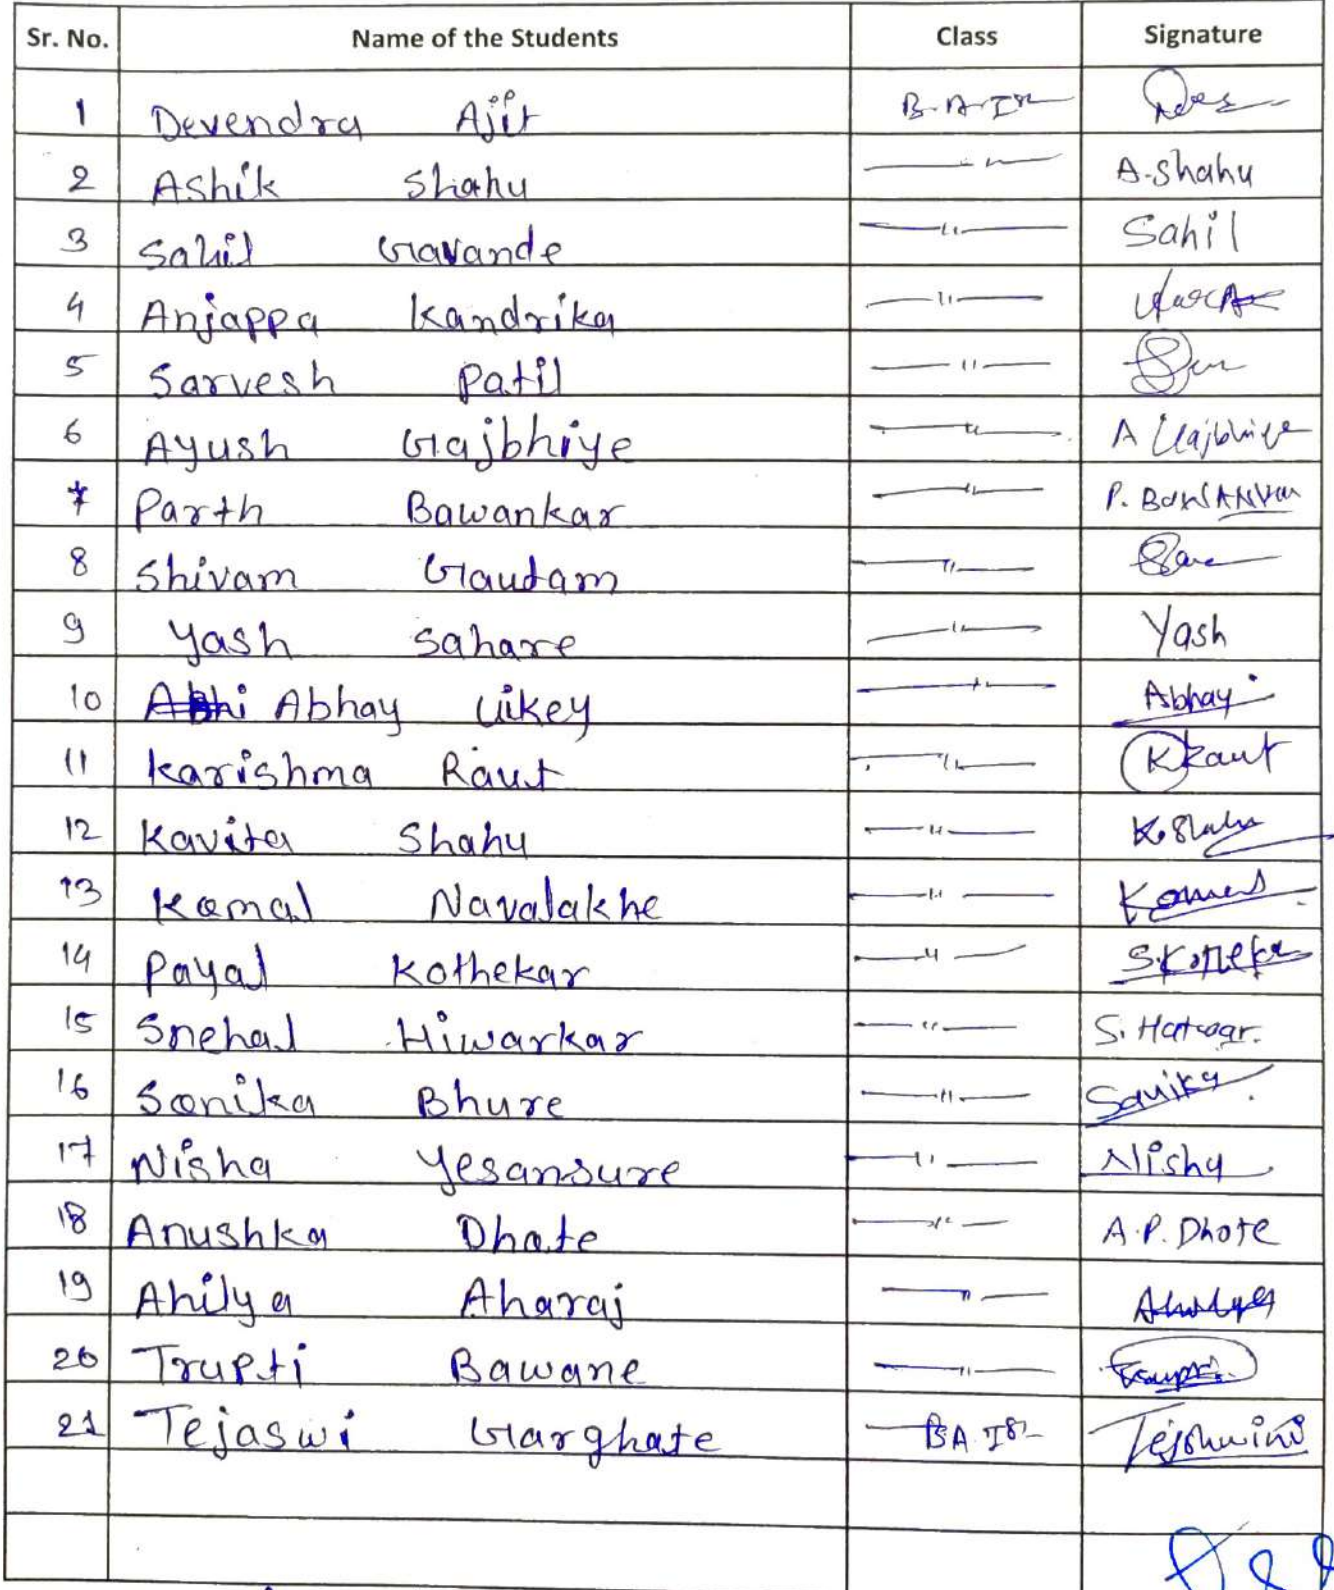 Sr. No. Name of the Students Class Signature
1 Devendra Ajit B.A-Ist
2 Ashik Shahu —〃— A.Shahu
3 Sahil Gavande —〃— Sahil
4 Anjappa Kandrika —〃—
5 Sarvesh Patil —〃—
6 Ayush Gajbhiye —〃— A Gajbhiye
7 Parth Bawankar —〃— P.
8 Shivam Gautam —〃—
9 Yash Sahare —〃— Yash
10 Abhi Abhay Uikey —〃— Abhay
11 Karishma Raut —〃— K Raut
12 Kavita Shahu —〃—
13 Komal Navalakhe —〃— Komal
14 Payal Kothekar —〃—
15 Snehal Hiwarkar —〃— S.
16 Sanika Bhure —〃— Sanika
17 Nisha Yesansure —〃— Nisha
18 Anushka Dhate —〃— A.P. Dhote
19 Ahilya Aharaj —〃—
20 Trupti Bawane —〃—
21 Tejaswi Garghate BA Ist Tejshwini